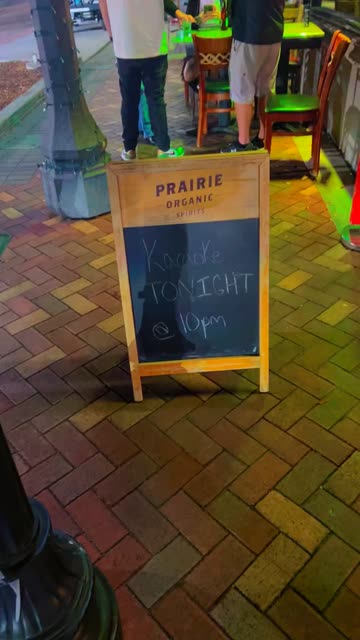 PRAIRIE
ORGANIC
SPIRITS
Karaoke
TONIGHT
@ 10pm